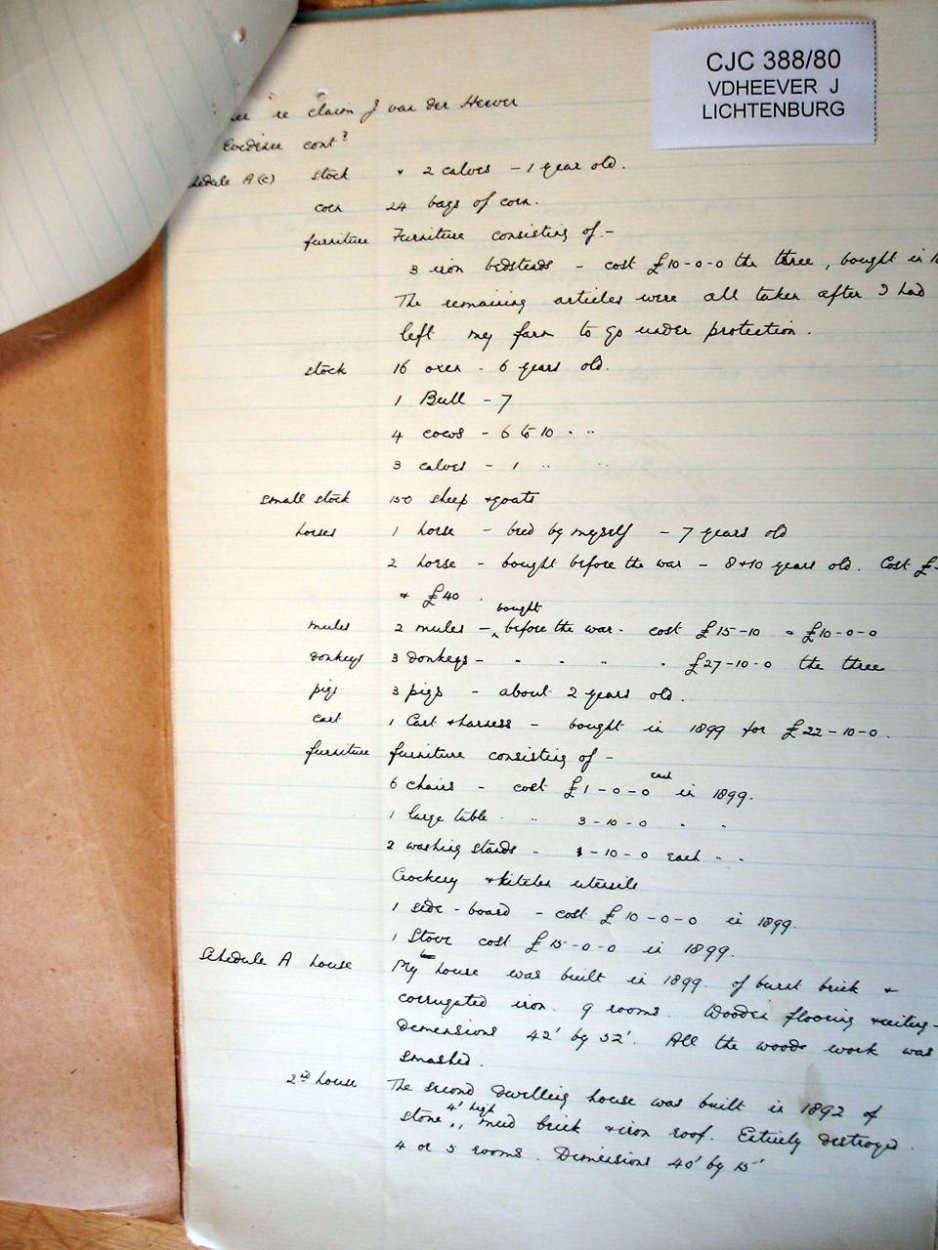 CJC 388/80
VDHEEVER J
LICHTENBURG
re claim J van der Heever
Evidence cont?
A (c) stock + 2 calves - 1 year old.
corn 24 bags of corn.
furniture Furniture consisting of -
3 iron bedsteads - cost £10-0-0 the three, bought in
The remaining articles were all taken after I had
left my farm to go under protection.
stock 16 oxen - 6 years old.
1 Bull - 7
4 cows - 6 to 10 " "
3 calves - 1 " "
small stock 150 sheep + goats
horses 1 horse - bred by myself - 7 years old
2 horse - bought before the war - 8 + 10 years old. Cost £
+ £40.
mules 2 mules - bought before the war - cost £15-10 + £10-0-0
donkeys 3 donkeys - " " " " £27-10-0 the three
pigs 3 pigs - about 2 years old.
cart 1 Cart + harness - bought in 1899 for £22-10-0.
furniture furniture consisting of -
6 chairs - cost £1-0-0 each in 1899.
1 large table " " 3-10-0 " "
2 washing stands - 1-10-0 each " "
Crockery + kitchen utensils
1 side-board - cost £10-0-0 in 1899.
1 Stove cost £15-0-0 in 1899.
Schedule A house My house was built in 1899 of burnt brick +
corrugated iron. 9 rooms. Wooden flooring + ceiling -
dimensions 42' by 52'. All the woode work was
smashed.
2nd house The second dwelling house was built in 1892 of
stone 4' high, mud brick + iron roof. Entirely destroyed.
4 or 5 rooms. Dimensions 40' by 15'